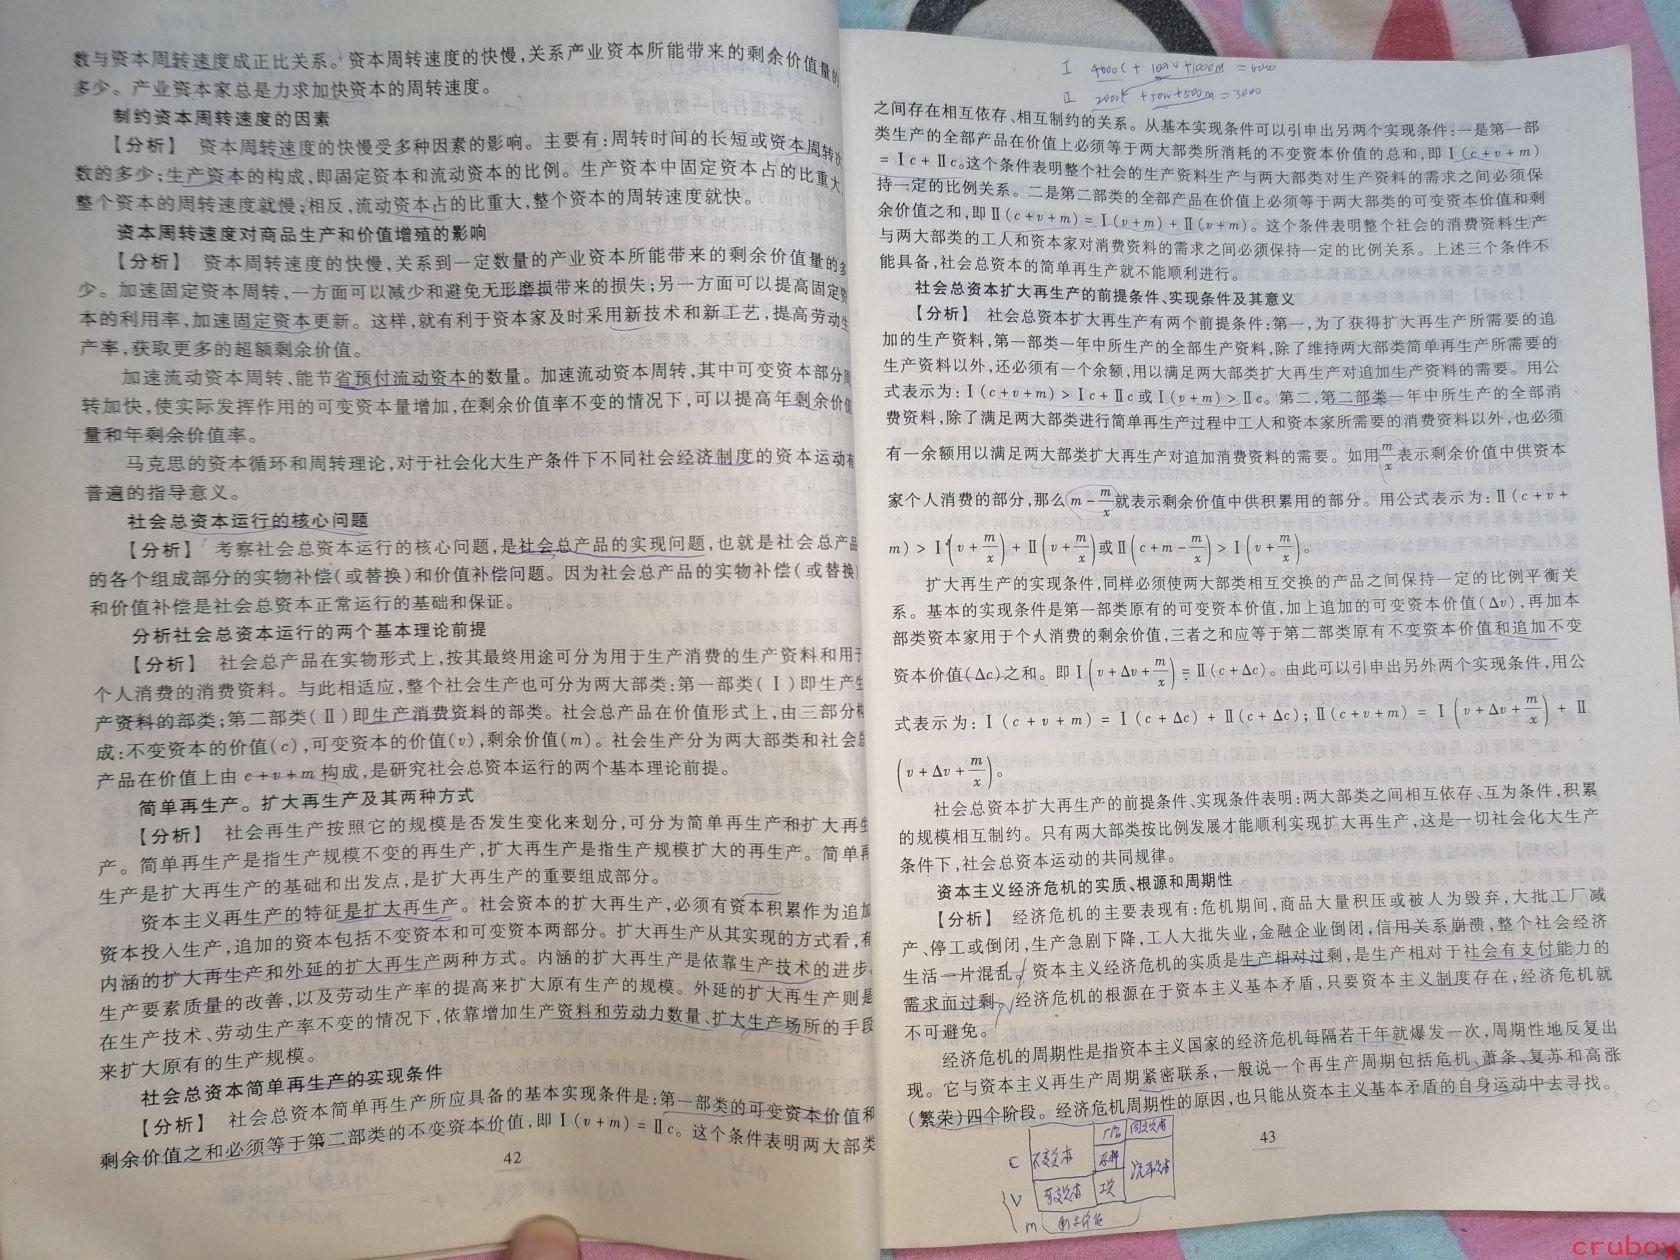 数与资本周转速度成正比关系。资本周转速度的快慢,关系产业资本所能带来的剩余价值量的
多少。产业资本家总是力求加快资本的周转速度。
制约资本周转速度的因素
【分析】 资本周转速度的快慢受多种因素的影响。主要有:周转时间的长短或资本周转次
数的多少;生产资本的构成,即固定资本和流动资本的比例。生产资本中固定资本占的比重大,
整个资本的周转速度就慢;相反,流动资本占的比重大,整个资本的周转速度就快。
资本周转速度对商品生产和价值增殖的影响
【分析】 资本周转速度的快慢,关系到一定数量的产业资本所能带来的剩余价值量的多
少。加速固定资本周转,一方面可以减少和避免无形磨损带来的损失;另一方面可以提高固定资
本的利用率,加速固定资本更新。这样,就有利于资本家及时采用新技术和新工艺,提高劳动生
产率,获取更多的超额剩余价值。
加速流动资本周转,能节省预付流动资本的数量。加速流动资本周转,其中可变资本部分周
转加快,使实际发挥作用的可变资本量增加,在剩余价值率不变的情况下,可以提高年剩余价值
量和年剩余价值率。
马克思的资本循环和周转理论,对于社会化大生产条件下不同社会经济制度的资本运动有
普遍的指导意义。
社会总资本运行的核心问题
【分析】 考察社会总资本运行的核心问题,是社会总产品的实现问题,也就是社会总产品
的各个组成部分的实物补偿(或替换)和价值补偿问题。因为社会总产品的实物补偿(或替换)
和价值补偿是社会总资本正常运行的基础和保证。
分析社会总资本运行的两个基本理论前提
【分析】 社会总产品在实物形式上,按其最终用途可分为用于生产消费的生产资料和用于
个人消费的消费资料。与此相适应,整个社会生产也可分为两大部类:第一部类(Ⅰ)即生产生
产资料的部类;第二部类(Ⅱ)即生产消费资料的部类。社会总产品在价值形式上,由三部分构
成:不变资本的价值(c),可变资本的价值(v),剩余价值(m)。社会生产分为两大部类和社会总
产品在价值上由 c+v+m 构成,是研究社会总资本运行的两个基本理论前提。
简单再生产。扩大再生产及其两种方式
【分析】 社会再生产按照它的规模是否发生变化来划分,可分为简单再生产和扩大再生
产。简单再生产是指生产规模不变的再生产,扩大再生产是指生产规模扩大的再生产。简单再
生产是扩大再生产的基础和出发点,是扩大再生产的重要组成部分。
资本主义再生产的特征是扩大再生产。社会资本的扩大再生产,必须有资本积累作为追加
资本投入生产,追加的资本包括不变资本和可变资本两部分。扩大再生产从其实现的方式看,有
内涵的扩大再生产和外延的扩大再生产两种方式。内涵的扩大再生产是依靠生产技术的进步、
生产要素质量的改善,以及劳动生产率的提高来扩大原有生产的规模。外延的扩大再生产则是
在生产技术、劳动生产率不变的情况下,依靠增加生产资料和劳动力数量、扩大生产场所的手段
来扩大原有的生产规模。
社会总资本简单再生产的实现条件
【分析】 社会总资本简单再生产所应具备的基本实现条件是:第一部类的可变资本价值和
剩余价值之和必须等于第二部类的不变资本价值,即Ⅰ(v+m)=Ⅱc。这个条件表明两大部类
42
Ⅰ 4000c + 1000v+1000m = 6000
Ⅱ 2000c +500v+500m = 3000
之间存在相互依存、相互制约的关系。从基本实现条件可以引申出另两个实现条件:一是第一部
类生产的全部产品在价值上必须等于两大部类所消耗的不变资本价值的总和,即Ⅰ(c+v+m)
=Ⅰc+Ⅱc。这个条件表明整个社会的生产资料生产与两大部类对生产资料的需求之间必须保
持一定的比例关系。二是第二部类的全部产品在价值上必须等于两大部类的可变资本价值和剩
余价值之和,即Ⅱ(c+v+m)=Ⅰ(v+m)+Ⅱ(v+m)。这个条件表明整个社会的消费资料生产
与两大部类的工人和资本家对消费资料的需求之间必须保持一定的比例关系。上述三个条件不
能具备,社会总资本的简单再生产就不能顺利进行。
社会总资本扩大再生产的前提条件、实现条件及其意义
【分析】 社会总资本扩大再生产有两个前提条件:第一,为了获得扩大再生产所需要的追
加的生产资料,第一部类一年中所生产的全部生产资料,除了维持两大部类简单再生产所需要的
生产资料以外,还必须有一个余额,用以满足两大部类扩大再生产对追加生产资料的需要。用公
式表示为:Ⅰ(c+v+m)>Ⅰc+Ⅱc或Ⅰ(v+m)>Ⅱc。第二,第二部类一年中所生产的全部消
费资料,除了满足两大部类进行简单再生产过程中工人和资本家所需要的消费资料以外,也必须
有一余额用以满足两大部类扩大再生产对追加消费资料的需要。如用m/x表示剩余价值中供资本
家个人消费的部分,那么m-m/x就表示剩余价值中供积累用的部分。用公式表示为:Ⅱ(c+v+
m)>Ⅰ(v+m/x)+Ⅱ(v+m/x)或Ⅱ(c+m-m/x)>Ⅰ(v+m/x)。
扩大再生产的实现条件,同样必须使两大部类相互交换的产品之间保持一定的比例平衡关
系。基本的实现条件是第一部类原有的可变资本价值,加上追加的可变资本价值(Δv),再加本
部类资本家用于个人消费的剩余价值,三者之和应等于第二部类原有不变资本价值和追加不变
资本价值(Δc)之和。即Ⅰ(v+Δv+m/x)=Ⅱ(c+Δc)。由此可以引申出另外两个实现条件,用公
式表示为:Ⅰ(c+v+m)=Ⅰ(c+Δc)+Ⅱ(c+Δc);Ⅱ(c+v+m)=Ⅰ(v+Δv+m/x)+Ⅱ
(v+Δv+m/x)。
社会总资本扩大再生产的前提条件、实现条件表明:两大部类之间相互依存、互为条件,积累
的规模相互制约。只有两大部类按比例发展才能顺利实现扩大再生产,这是一切社会化大生产
条件下,社会总资本运动的共同规律。
资本主义经济危机的实质、根源和周期性
【分析】 经济危机的主要表现有:危机期间,商品大量积压或被人为毁弃,大批工厂减
产、停工或倒闭,生产急剧下降,工人大批失业,金融企业倒闭,信用关系崩溃,整个社会经济
生活一片混乱。资本主义经济危机的实质是生产相对过剩,是生产相对于社会有支付能力的
需求而过剩。经济危机的根源在于资本主义基本矛盾,只要资本主义制度存在,经济危机就
不可避免。
经济危机的周期性是指资本主义国家的经济危机每隔若干年就爆发一次,周期性地反复出
现。它与资本主义再生产周期紧密联系,一般说一个再生产周期包括危机、萧条、复苏和高涨
(繁荣)四个阶段。经济危机周期性的原因,也只能从资本主义基本矛盾的自身运动中去寻找。
43
厂房 固定资本
C 不变资本 原料 流动资本
V 可变资本 工资
m 剩余价值
crubox